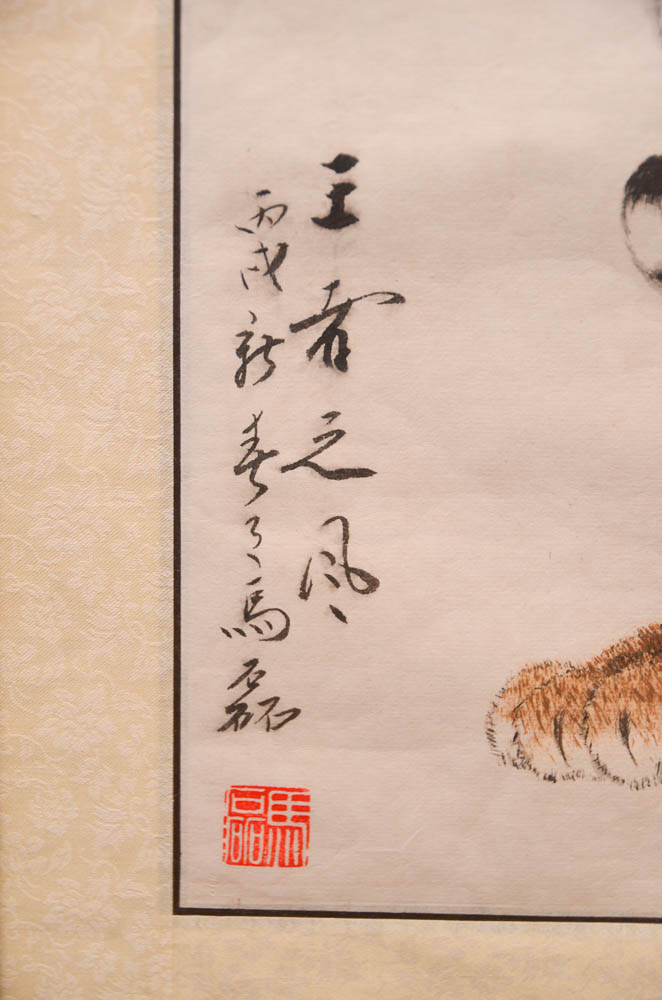 王者之风
丙戌新春月馬磊
馬磊